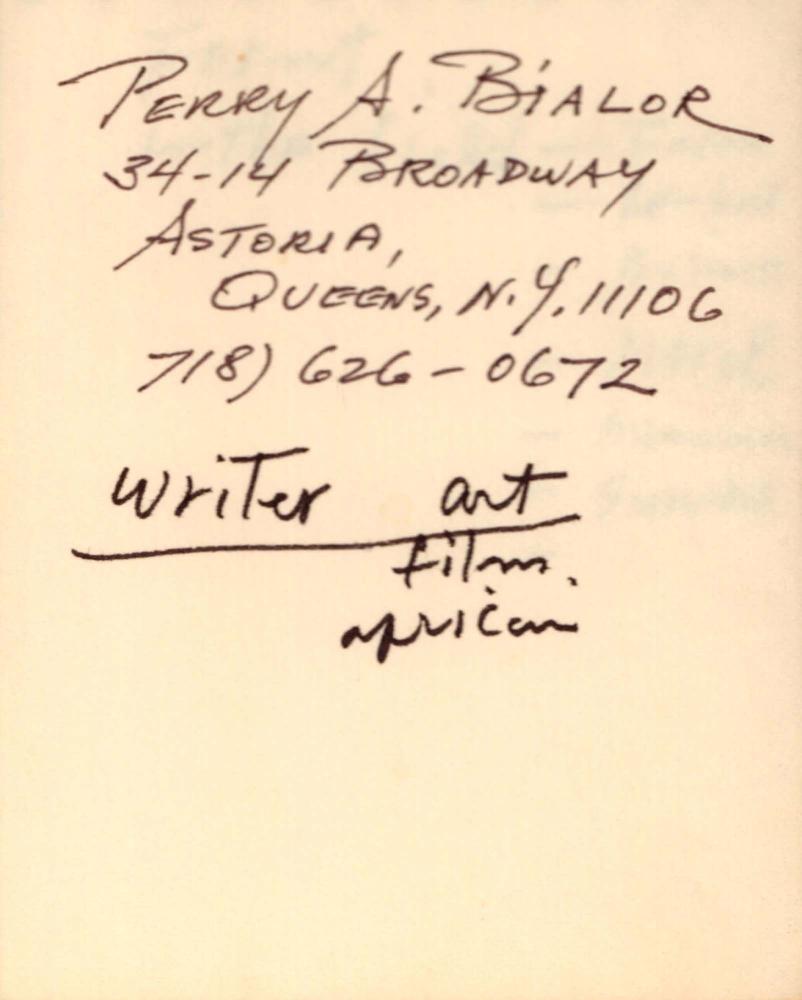 PERRY A. BIALOR
34-14 BROADWAY
ASTORIA,
QUEENS, N.Y. 11106
718) 626-0672
writer art
film.
african